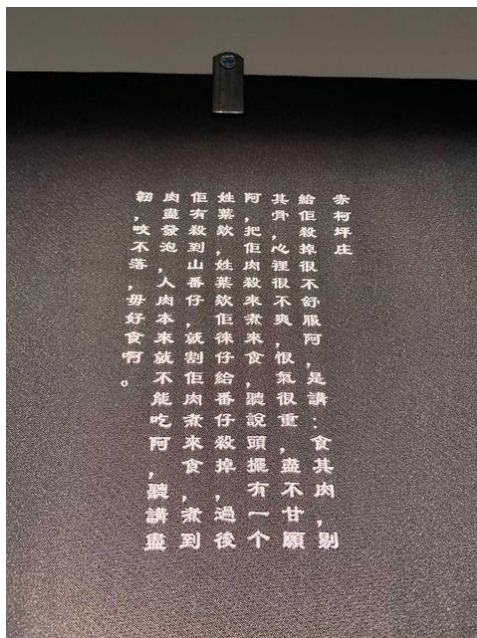 赤柯坪庄
給佢殺掉很不舒服阿，是講：食其肉，剔
其骨，心裡很不爽，恨氣很重，盡不甘願
阿，把佢肉殺來煮來食，聽說頭擺有一个
姓葉欸，姓葉欸佢徠仔給番仔殺掉，過後
佢有殺到山番仔，就割佢肉煮來食，煮到
肉盡發泡，人肉本來就不能吃阿，聽講盡
韌，咬不落，毋好食啊。